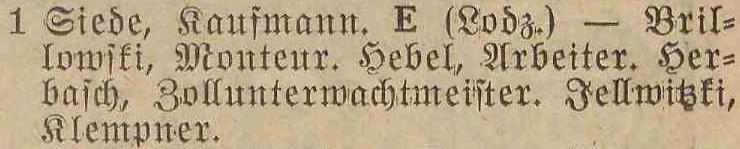 1 Siede, Kaufmann. E (Lodz.) — Bril-
lowski, Monteur. Hebel, Arbeiter. Her-
basch, Zollunterwachtmeister. Jellwitzki,
Klempner.